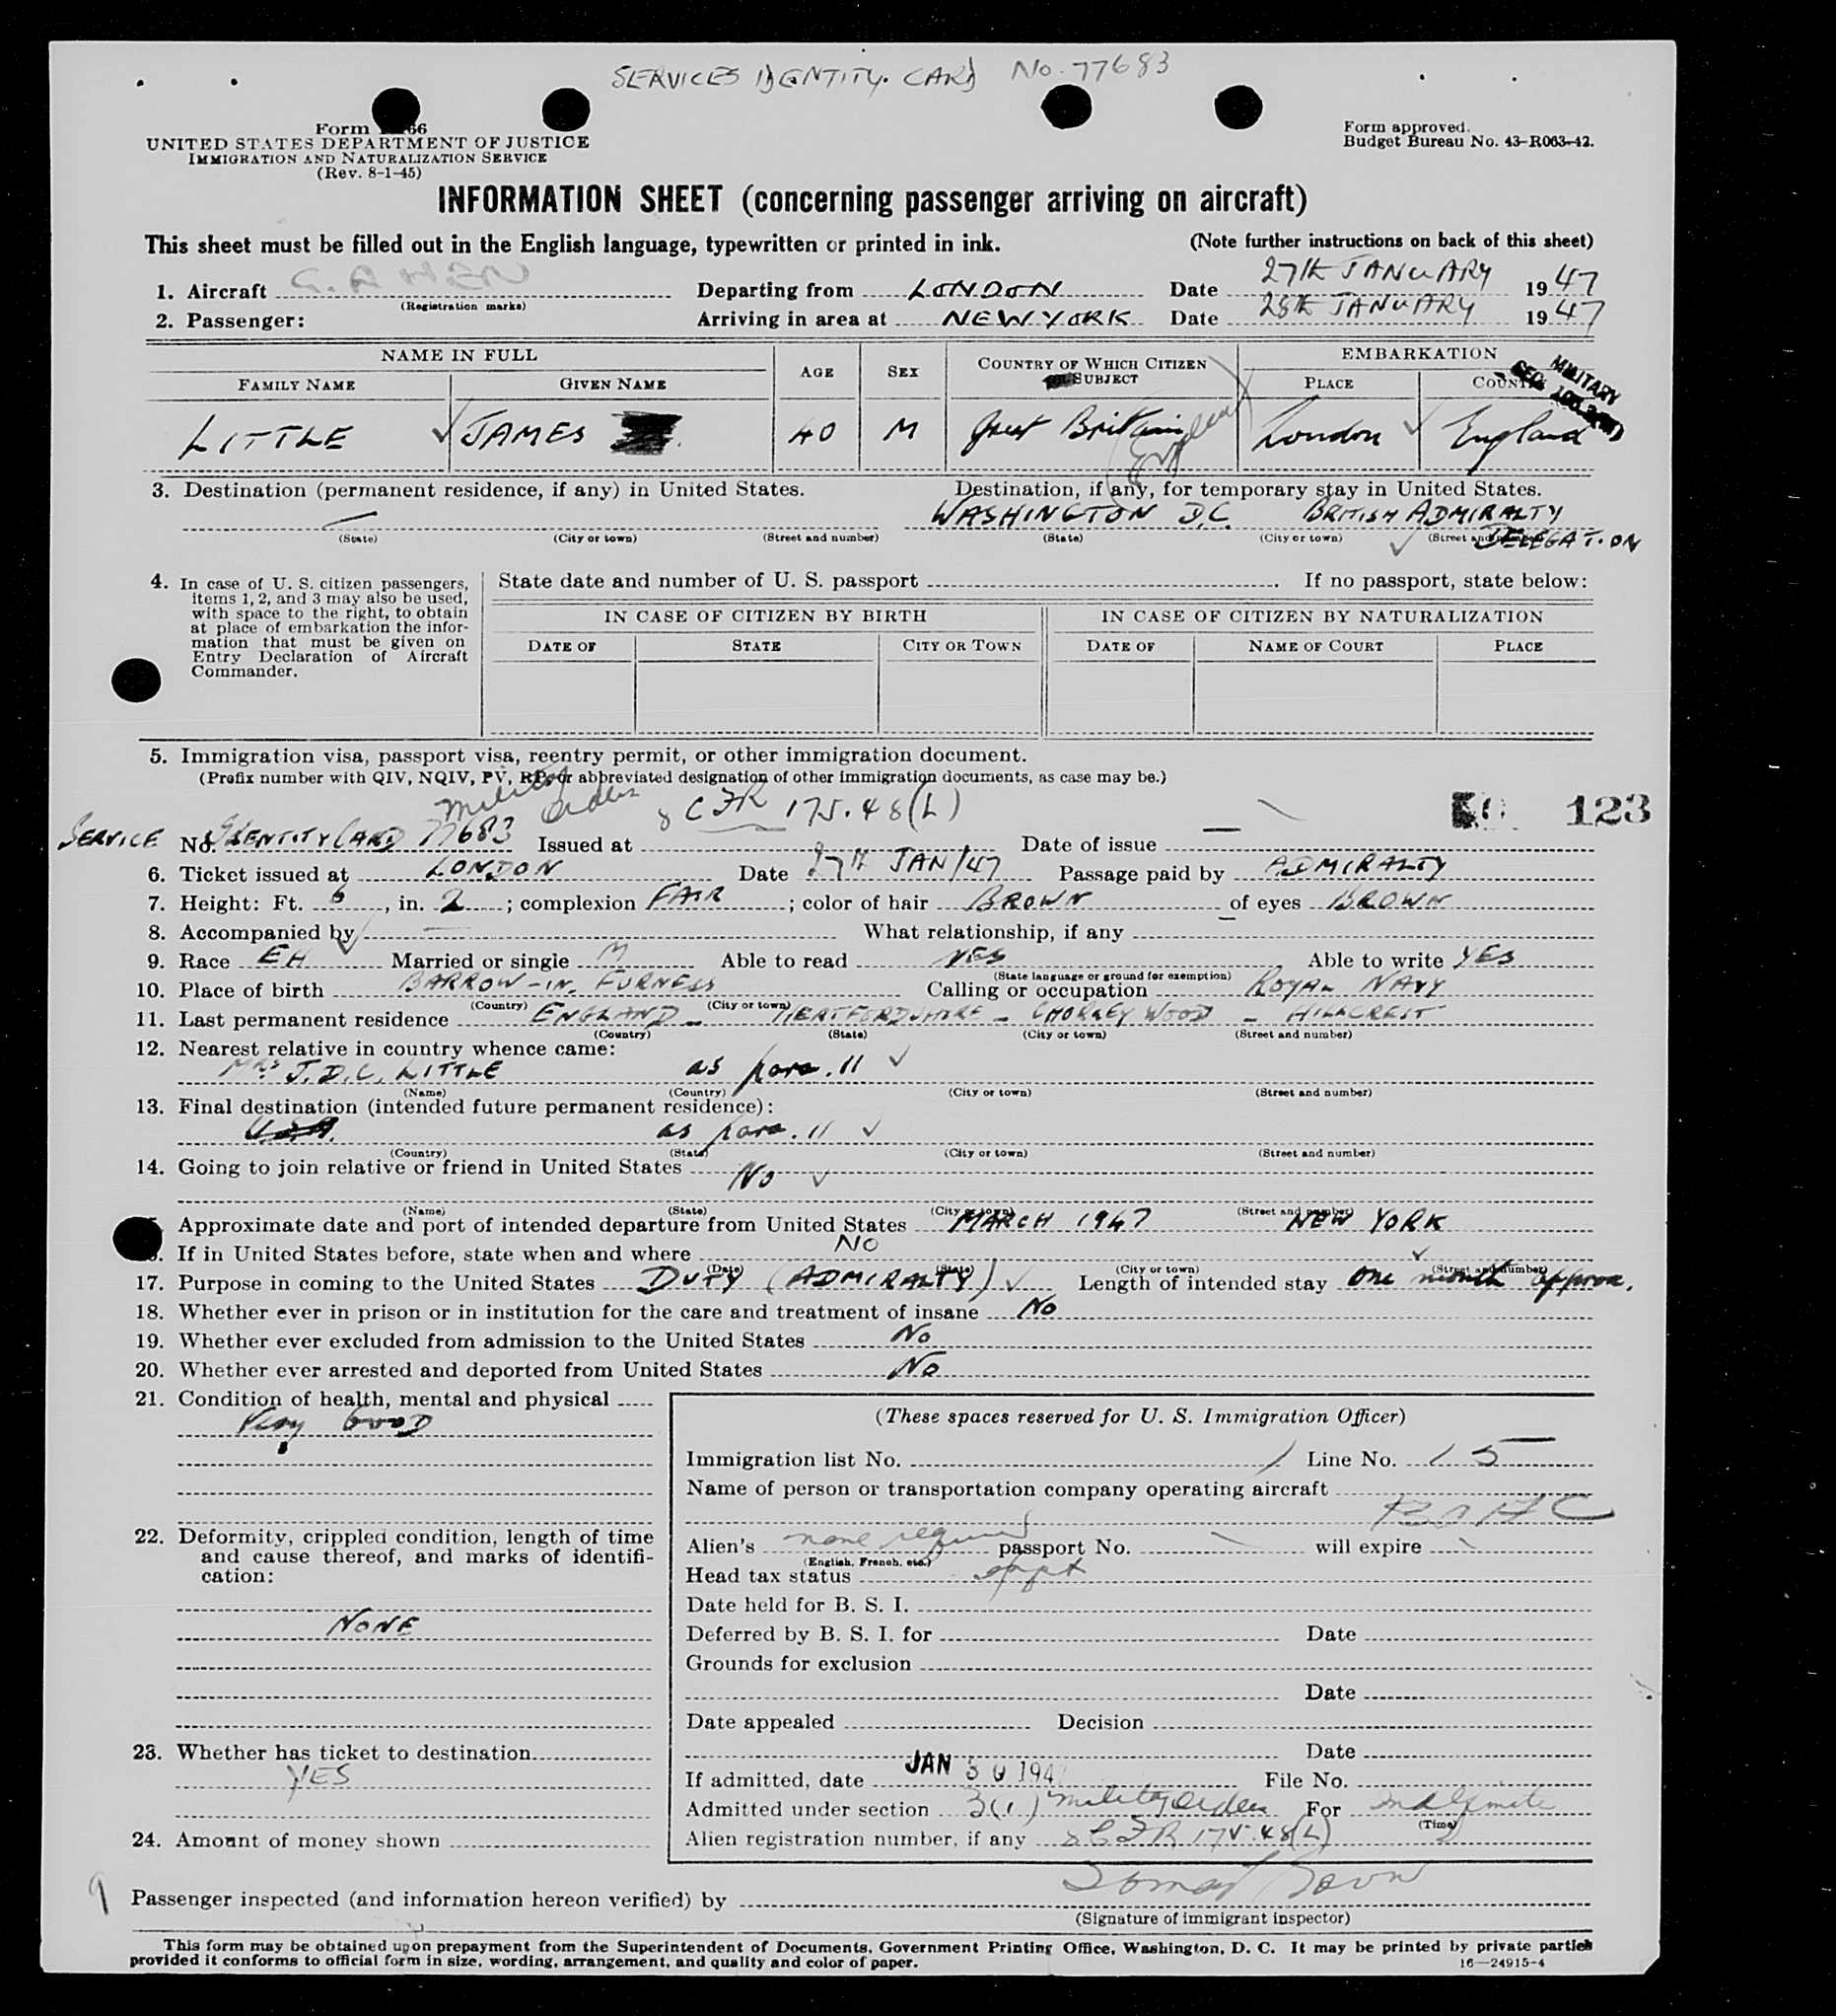 SERVICES IDENTITY. CARD No. 77683
Form 66
UNITED STATES DEPARTMENT OF JUSTICE
IMMIGRATION AND NATURALIZATION SERVICE
(Rev. 8-1-45)
Form approved.
Budget Bureau No. 43-R063-42.
INFORMATION SHEET (concerning passenger arriving on aircraft)
This sheet must be filled out in the English language, typewritten or printed in ink. (Note further instructions on back of this sheet)
1. Aircraft G.AHEN Departing from LONDON Date 27th JANUARY 1947
(Registration marks)
2. Passenger: Arriving in area at NEW YORK Date 28th JANUARY 1947
NAME IN FULL AGE SEX COUNTRY OF WHICH CITIZEN SUBJECT EMBARKATION
FAMILY NAME GIVEN NAME PLACE COUNTRY
MILITARY
SEC
LITTLE JAMES 40 M Great Britain London England
3. Destination (permanent residence, if any) in United States. Destination, if any, for temporary stay in United States.
— WASHINGTON D.C. BRITISH ADMIRALTY
DELEGATION
(State) (City or town) (Street and number) (State) (City or town) (Street and number)
4. In case of U. S. citizen passengers, items 1, 2, and 3 may also be used, with space to the right, to obtain at place of embarkation the information that must be given on Entry Declaration of Aircraft Commander.
State date and number of U. S. passport . If no passport, state below:
IN CASE OF CITIZEN BY BIRTH IN CASE OF CITIZEN BY NATURALIZATION
DATE OF STATE CITY OR TOWN DATE OF NAME OF COURT PLACE
5. Immigration visa, passport visa, reentry permit, or other immigration document.
(Prefix number with QIV, NQIV, PV, RP, or abbreviated designation of other immigration documents, as case may be.)
Military Orders 8 CFR 175.48(L)
123
SERVICE No. IDENTITY CARD 77683 Issued at — Date of issue
6. Ticket issued at LONDON Date 27th JAN/47 Passage paid by ADMIRALTY
7. Height: Ft. 6, in. 2; complexion FAIR; color of hair BROWN of eyes BROWN
8. Accompanied by — What relationship, if any —
9. Race EH Married or single M Able to read YES Able to write YES
(State language or ground for exemption)
10. Place of birth BARROW-IN. FURNESS Calling or occupation ROYAL NAVY
(Country) (City or town)
11. Last permanent residence ENGLAND - HERTFORDSHIRE - CHORLEY WOOD - HILLCREST
(Country) (State) (City or town) (Street and number)
12. Nearest relative in country whence came:
MRS J.D.C. LITTLE as para. 11
(Name) (Country) (City or town) (Street and number)
13. Final destination (intended future permanent residence):
U.S.A. as para. 11
(Country) (State) (City or town) (Street and number)
14. Going to join relative or friend in United States No
(Name) (State) (City or town) (Street and number)
Approximate date and port of intended departure from United States MARCH 1947 NEW YORK
If in United States before, state when and where NO
(Date) (State) (City or town) (Street and number)
17. Purpose in coming to the United States DUTY (ADMIRALTY) Length of intended stay One month approx.
18. Whether ever in prison or in institution for the care and treatment of insane No
19. Whether ever excluded from admission to the United States No
20. Whether ever arrested and deported from United States No
21. Condition of health, mental and physical
Very Good
22. Deformity, crippled condition, length of time and cause thereof, and marks of identification:
NONE
23. Whether has ticket to destination
YES
24. Amount of money shown
(These spaces reserved for U. S. Immigration Officer)
Immigration list No. 1 Line No. 15
Name of person or transportation company operating aircraft
BOAC
Alien's none required passport No. will expire
(English, French, etc.)
Head tax status
Date held for B. S. I.
Deferred by B. S. I. for Date
Grounds for exclusion
Date
Date appealed Decision
Date
If admitted, date JAN 30 194 File No.
Admitted under section 3(1) Military Orders For Indefinite
(Time)
Alien registration number, if any 8 CFR 175.48(L)
9
Passenger inspected (and information hereon verified) by
(Signature of immigrant inspector)
This form may be obtained upon prepayment from the Superintendent of Documents, Government Printing Office, Washington, D. C. It may be printed by private parties
provided it conforms to official form in size, wording, arrangement, and quality and color of paper. 16—24915-4